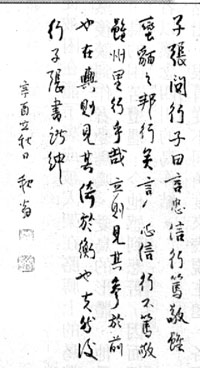 子張問行子曰言忠信行篤敬雖
蠻貊之邦行矣言不忠信行不篤敬
雖州里行乎哉立則見其參於前
也在輿則見其倚於衡也夫然後
行子張書諸紳
辛酉立秋日